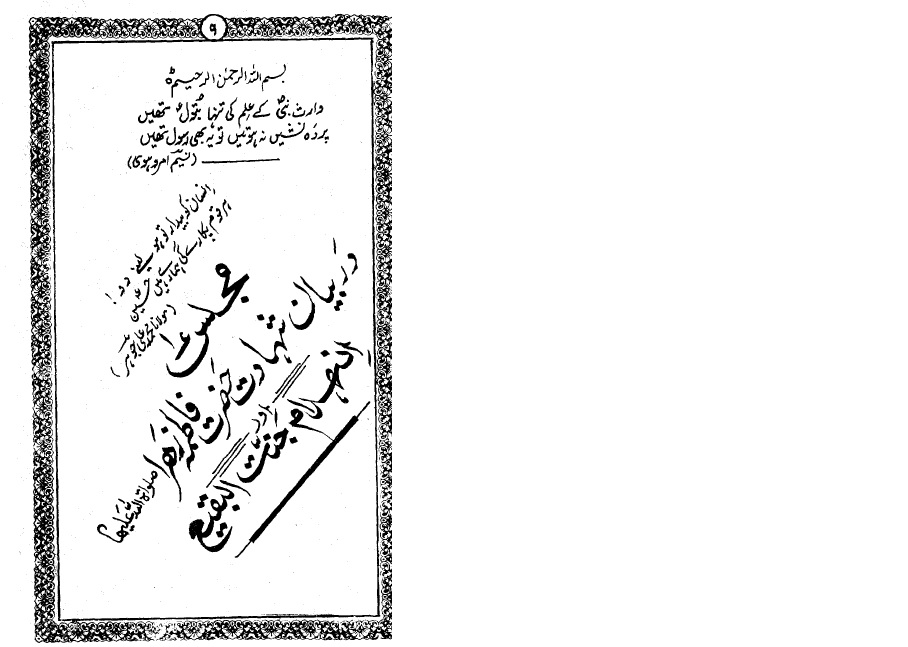 ۹
بسم اللہ الرحمٰن الرحیم
وارث نبیؐ کے علم کی تنہا بتولؑ تھیں
پردہ نشیں نہ ہوتیں تو یہ بھی رسول تھیں
(نسیم امروہوی)
انسان کو بیدار تو ہو لینے دو!
ہر قوم پکارے گی ہمارے ہیں حسینؑ
(مولانا محمد علی جوہر)
مجلس عزا
در بیان شہادت حضرت فاطمہ زہرا صلواۃ اللہ علیہا
اور
انہدام جنت البقیع